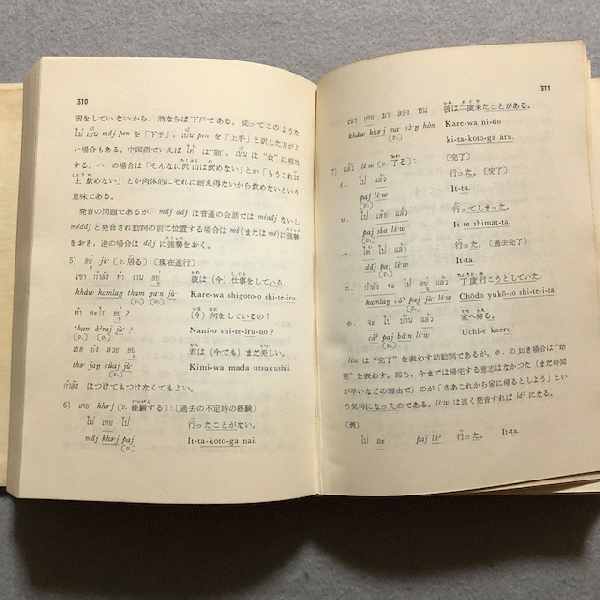 310
習をしていないから, 酒ならば下戸である. 従ってこのような
ไม่ เป็น mâj pen を「下手」, เป็น pen を「上手」と訳した方がよ
い場合もある. 中国語でいえば ได้ は“能”, เป็น は“会”に相当
する. イ. の場合は「そんなに沢山は飲めない」とか「もうこれ以
上飲めない」とか肉体的にそれに耐え得ないから飲めないという
意味である.
発音の問題であるが, mâj dâj は普通の会話では
と発音され動詞の前に位置する場合は に強勢
をおき, 逆の場合は dâj に強勢をおく.
5) อยู่ jù' (v. 居る):〔現在進行〕
เขา กำลัง ทำ งาน อยู่ 彼は(今)仕事をしている.
kháw kamlaŋ tham ŋa:n jù' Kare-wa shigoto-o shi-te-iru.
ทำ อะไร อยู่ ? (今)何をしているの?
tham 'àraj jù' ? Nani-o shi-te-iru-no ?
เธอ ยัง สวย อยู่ 君は(今でも)まだ美しい.
thəː jaŋ sǔaj jù' Kimi-wa mada utsukushii.
กำลัง はつけてもつけなくてもよい.
6) เคย khəːj (v. 経験する):〔過去の不定時の経験〕
ไม่ เคย ไป 行ったことがない.
mâj khəːj paj It-ta-koto-ga nai.
311
เขา เคย มา สอง หน 彼は二度来たことがある.
kháw khəːj ma: sɔ̌:ŋ hǒn Kare-wa ni-do
ki-ta-koto-ga aru.
7) แล้ว lɛ́:w (v. 了る):〔完了〕
イ. ไป แล้ว 行った.〔完了〕
paj lɛ́:w It-ta.
ロ. ไป เสีย แล้ว 行ってしまった.
paj sǐa lɛ́:w It-te shimat-ta.
ハ. ได้ ไป แล้ว 行った.〔過去完了〕
dâj paj lɛ́:w It-ta.
ニ. กำลัง จะ ไป อยู่ แล้ว 丁度行こうとしていた.
kamlaŋ cà' paj jù' lɛ́:w Chōdo yukō-to shi-te-i-ta.
ホ. จะ ไป บ้าน แล้ว 家へ帰る.
cà' paj bâ:n lɛ́:w Uchi-e kaeru.
lɛ́:w は“完了”を表わす助動詞であるが, ホ. の如き場合は“始
発”を表わす. 即ち, 今までは帰宅する意志はなかった(まだ時間
が早いなどの理由で)のが「さあこれから家に帰るとしよう」とい
う気持になったのである. lɛ́:w は速く発音すれば lɛ́' になる.
〔例〕
ไป แล้ว paj lɛ́' 行った. It-ta.